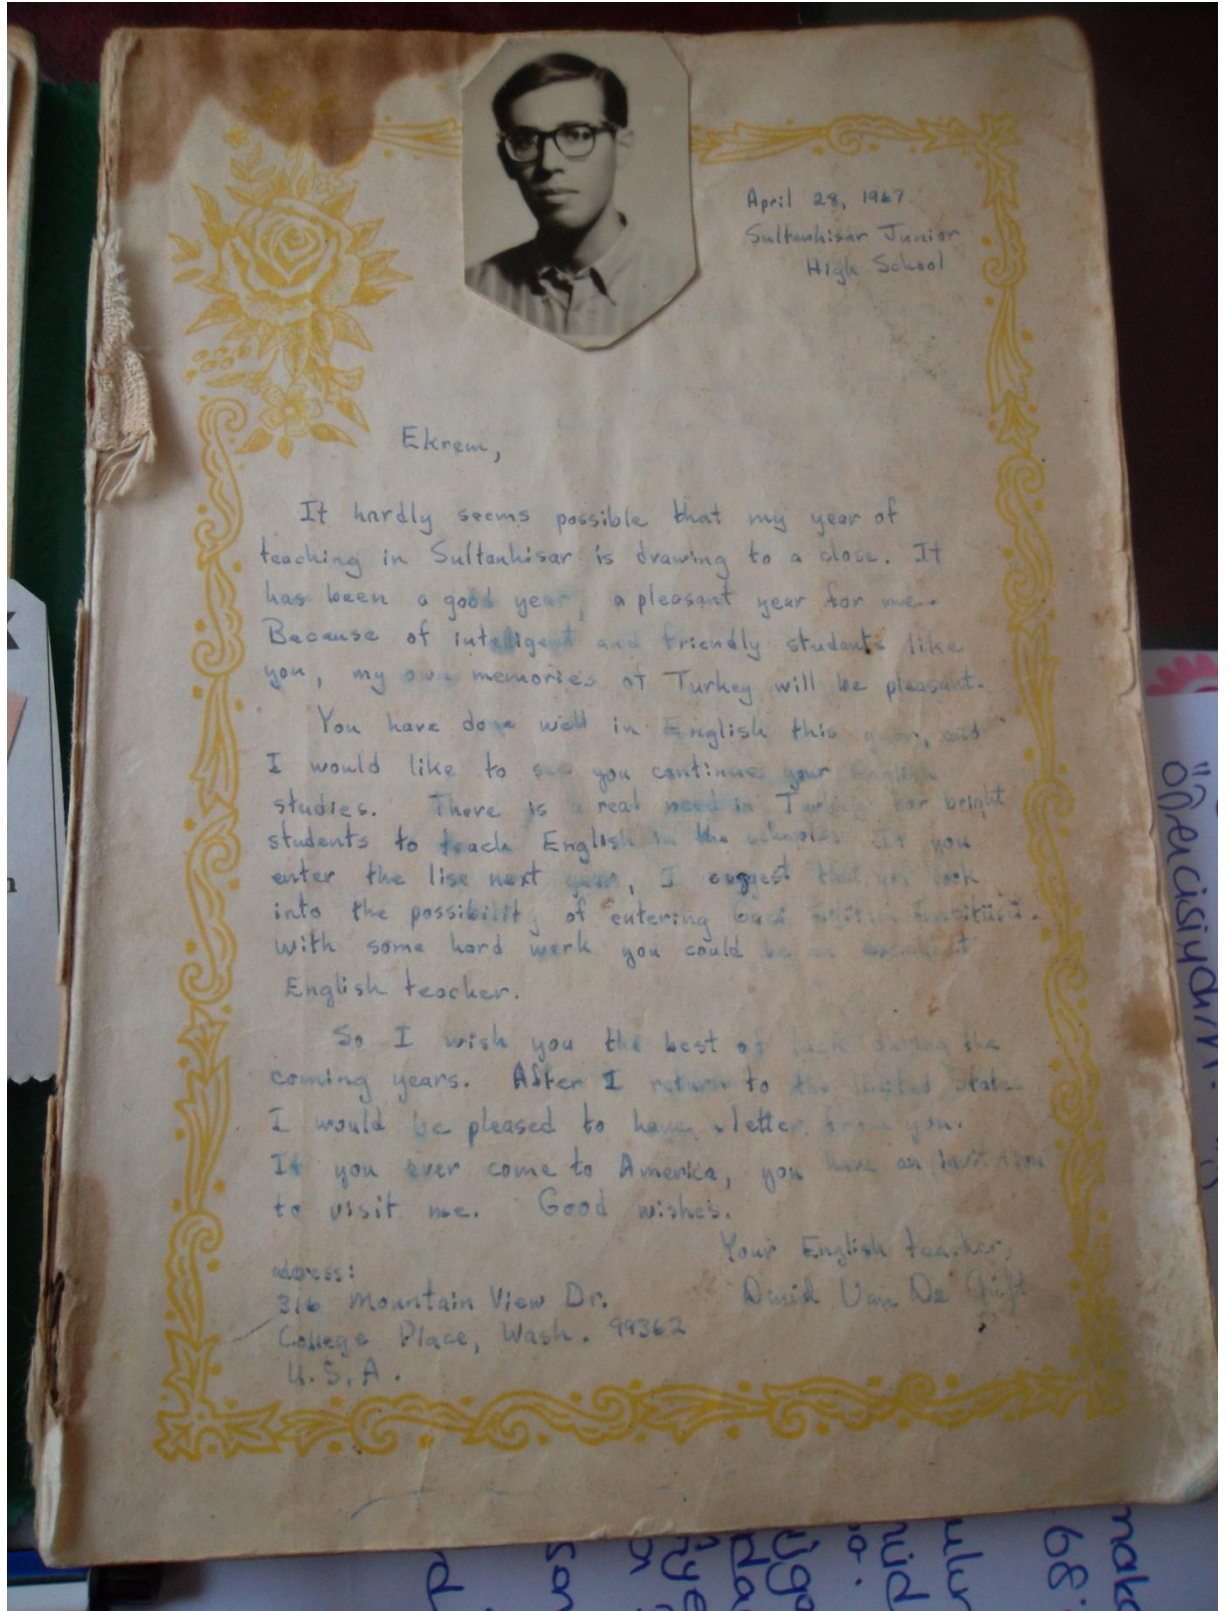 April 28, 1967
Sultanhisar Junior
High School
Ekrem,
It hardly seems possible that my year of
teaching in Sultanhisar is drawing to a close. It
has been a good year, a pleasant year for me.
Because of intelligent and friendly students like
you, my own memories of Turkey will be pleasant.
You have done well in English this year, and
I would like to see you continue your English
studies. There is a real need in Turkey for bright
students to teach English in the schools. If you
enter the lise next year, I sugest that you look
into the possibility of entering Gazi Eğitim Enstitüsü.
With some hard work you could be an excellent
English teacher.
So I wish you the best of luck during the
coming years. After I return to the United States
I would be pleased to have a letter from you.
If you ever come to America, you have an invitation
to visit me. Good wishes.
Your English teacher,
David Van De
adress:
316 Mountain View Dr.
College Place, Wash. 99362
U.S.A.
öğrencisiydim.
68